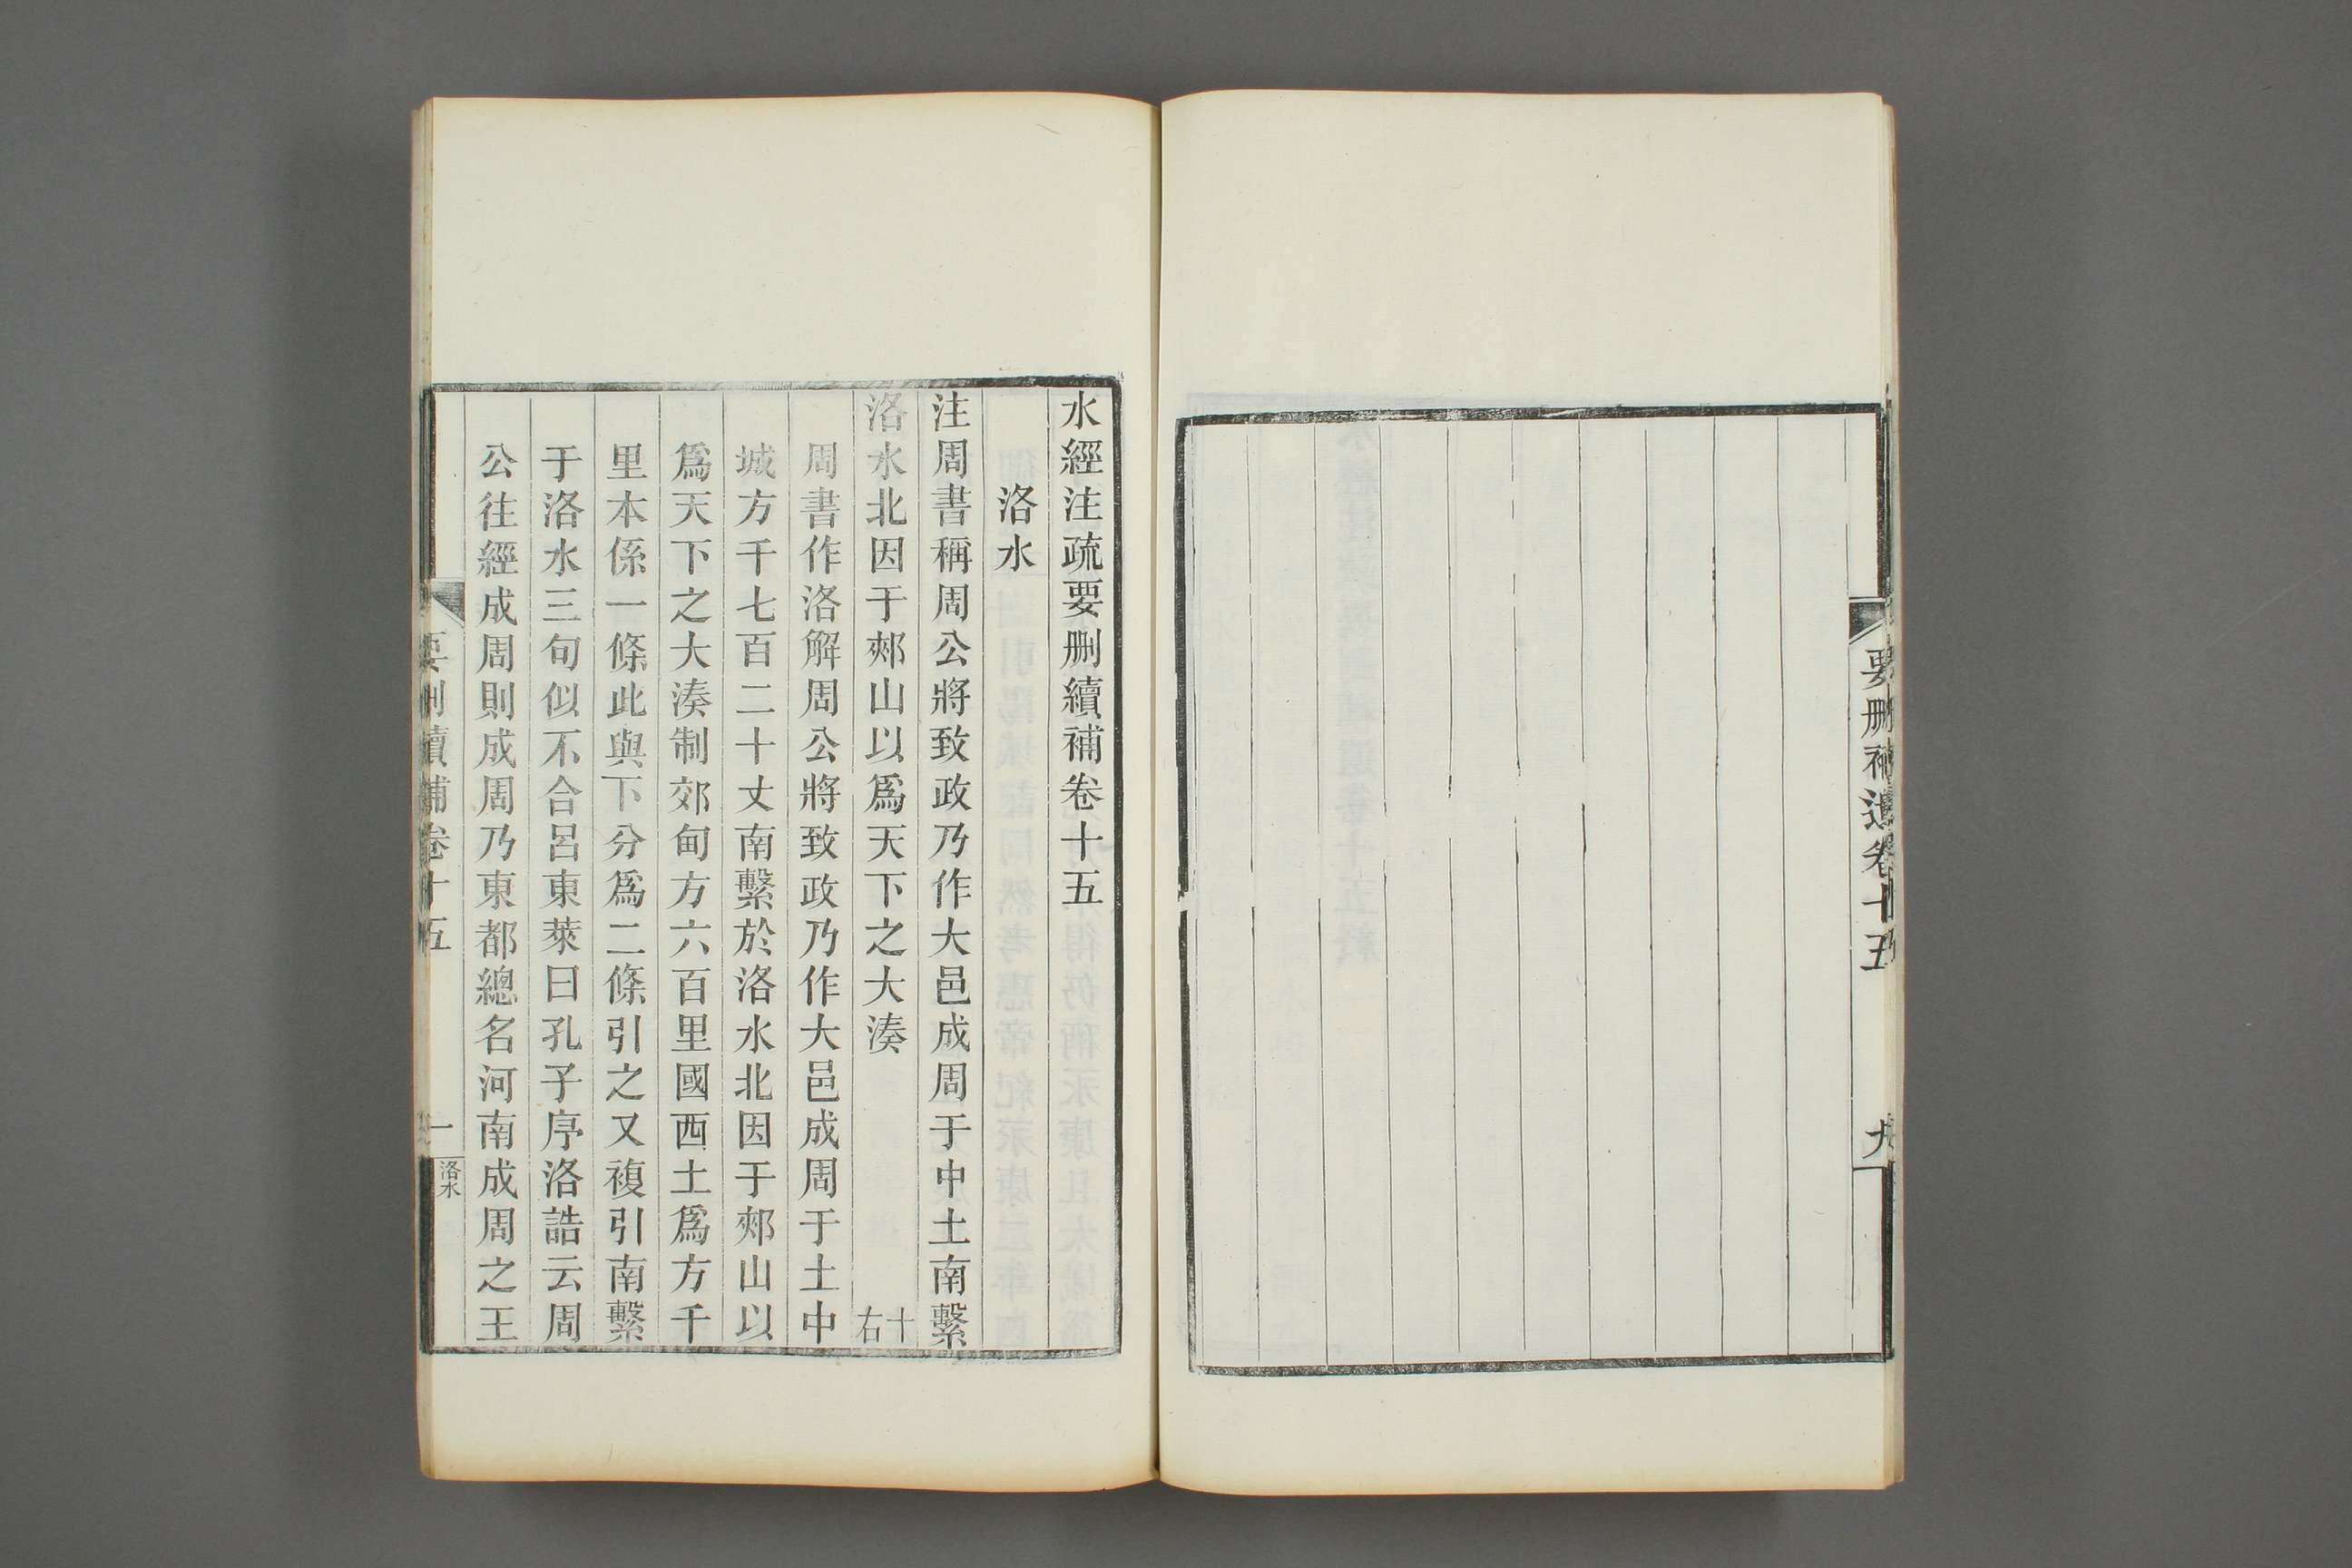 要刪補遺卷十五
九
水經注疏要刪續補卷十五
洛水
注周書稱周公將致政乃作大邑成周于中土南繫
洛水北因于郟山以爲天下之大湊
十右
周書作洛解周公將致政乃作大邑成周于土中
城方千七百二十丈南繫於洛水北因于郟山以
爲天下之大湊制郊甸方六百里國西土爲方千
里本係一條此與下分爲二條引之又複引南繫
于洛水三句似不合呂東萊曰孔子序洛誥云周
公往經成周則成周乃東都總名河南成周之王
要刪續補卷十五
一
洛水